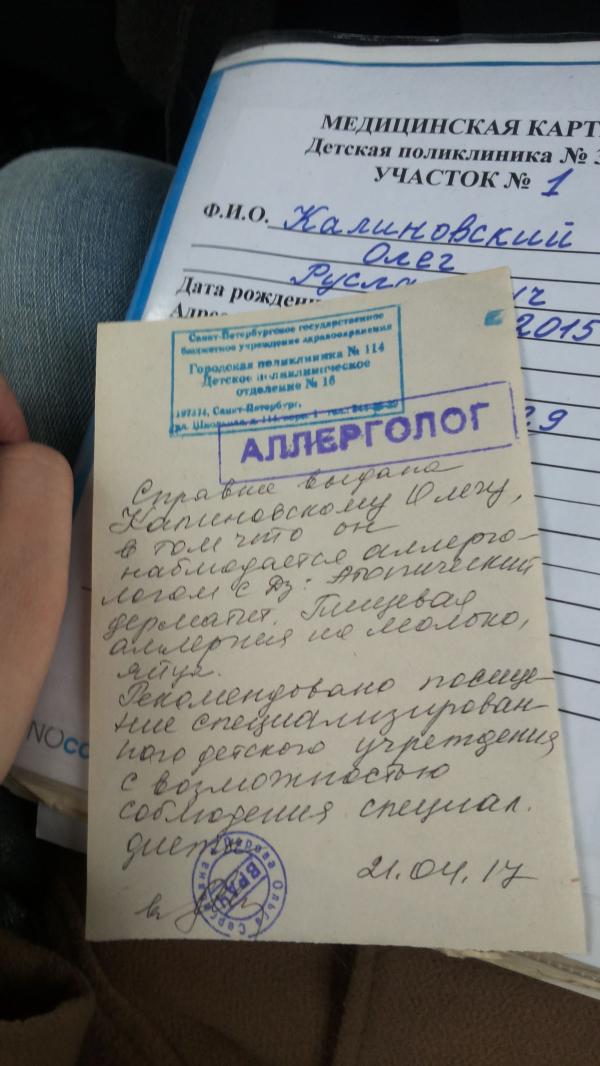 МЕДИЦИНСКАЯ КАРТ
Детская поликлиника № 3
УЧАСТОК № 1
Ф.И.О. Калиновский
Олег
Русла ич
Дата рождени
2015
Адре
29
Санкт-Петербургское государственное
бюджетное учреждение здравоохранения
Городская поликлиника № 114
Детское поликлиническое
отделение № 16
197374, Санкт-Петербург,
ул. Школьная, д. 114, корп. 1 тел.
АЛЛЕРГОЛОГ
Справка выдана
Калиновскому Олегу,
в том что он
наблюдается аллерго-
логом с Дз: Атопический
дерматит. Пищевая
аллергия на молоко,
яйца.
Рекомендовано посеще-
ние специализирован-
ного детского учреждения
с возможностью
соблюдения специал.
диеты
21.04.17
ВРАЧ
Ольга
NOCO